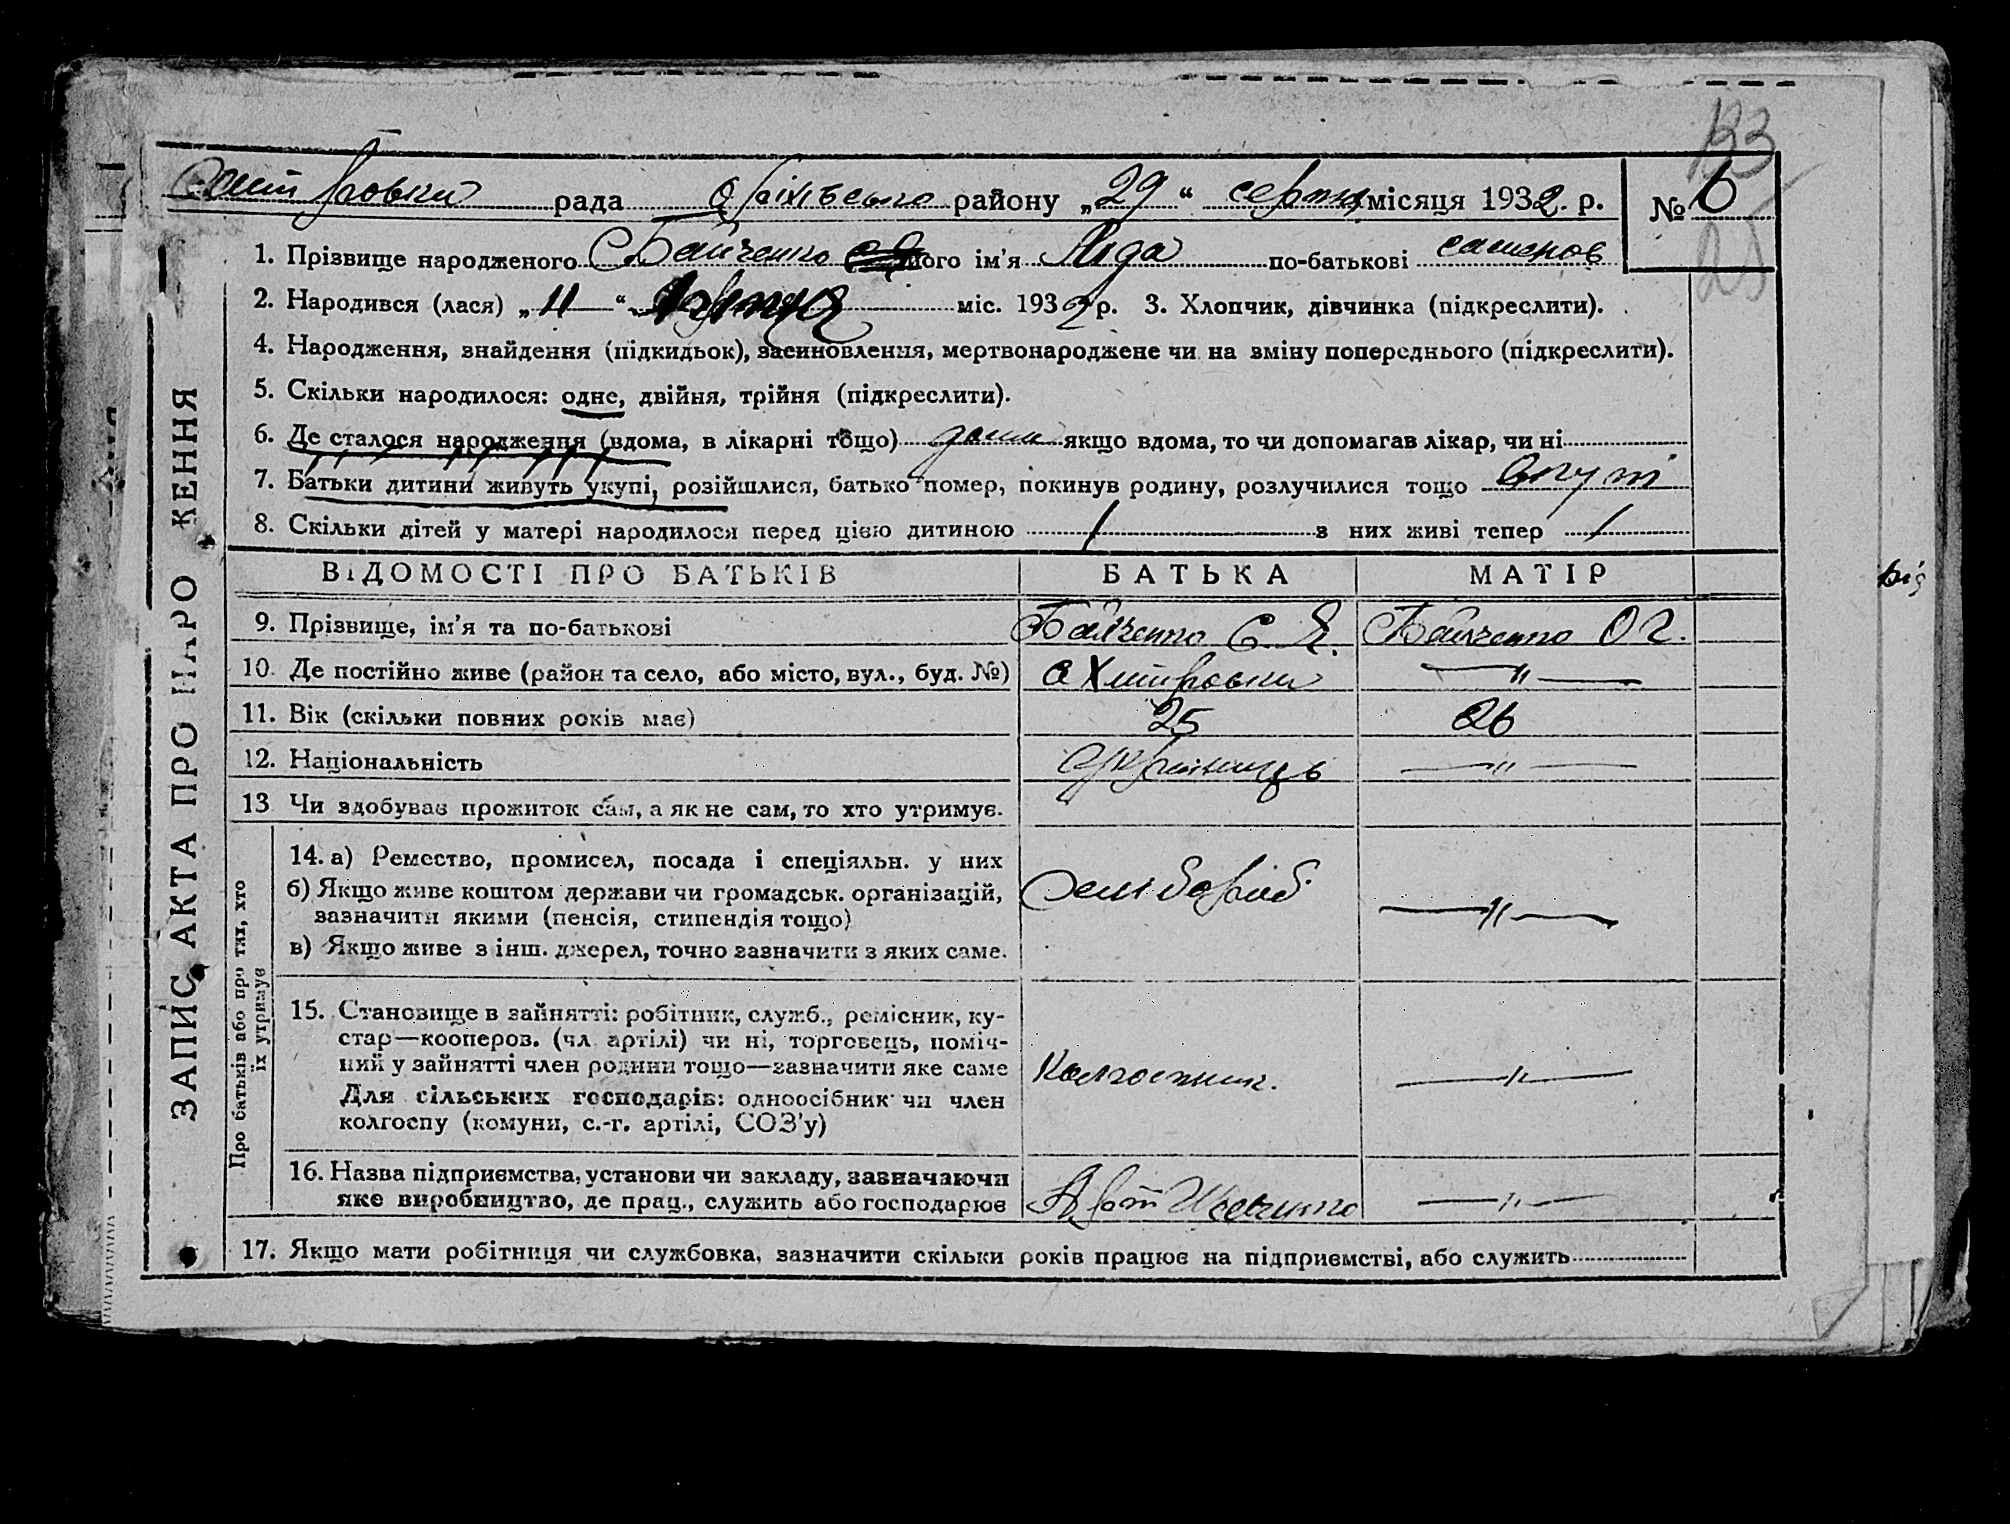 133
рада Оріхівського району „29" серпня місяця 1932 р. № 6
1. Прізвище народженого Байченко його ім'я Ліда по-батькові
2. Народився (лася) „11" серпня міс. 1932 р. 3. Хлопчик, дівчинка (підкреслити).
4. Народження, знайдення (підкидьок), засиновлення, мертвонароджене чи на зміну попереднього (підкреслити).
5. Скільки народилося: одне, двійня, трійня (підкреслити).
6. Де сталося народження (вдома, в лікарні тощо) дома якщо вдома, то чи допомагав лікар, чи ні
7. Батьки дитини живуть укупі, розійшлися, батько помер, покинув родину, розлучилися тощо вкупі
8. Скільки дітей у матері народилося перед цією дитиною 1 з них живі тепер 1
ВІДОМОСТІ ПРО БАТЬКІВ БАТЬКА МАТІР
9. Прізвище, ім'я та по-батькові Байченко С. Я. Байченко О Г.
10. Де постійно живе (район та село, або місто, вул., буд. №) —"—
11. Вік (скільки повних років має) 25 26
12. Національність Українець —"—
13 Чи здобував прожиток сам, а як не сам, то хто утримує.
14. а) Ремество, промисел, посада і спеціяльн. у них
б) Якщо живе коштом держави чи громадськ. організацій,
зазначити якими (пенсія, стипендія тощо)
в) Якщо живе з інш. джерел, точно зазначити з яких саме.
Хлібороб —"—
15. Становище в зайнятті: робітник, служб., ремісник, ку-
стар—коопероз. (чл. артілі) чи ні, торговець, поміч-
ний у зайнятті член родини тощо—зазначити яке саме
Для сільських господарів: одноосібник чи член
колгоспу (комуни, с.-г. артілі, СОЗ'у)
Колгоспник. —"—
16. Назва підприємства, установи чи закладу, зазначаючи
яке виробництво, де прац., служить або господарює
Арт Шевченко —"—
17. Якщо мати робітниця чи службовка, зазначити скільки років працює на підприємстві, або служить
ЗАПИС АКТА ПРО НАРО ЖЕННЯ
Про батьків або про тих, хто
їх утримує
від